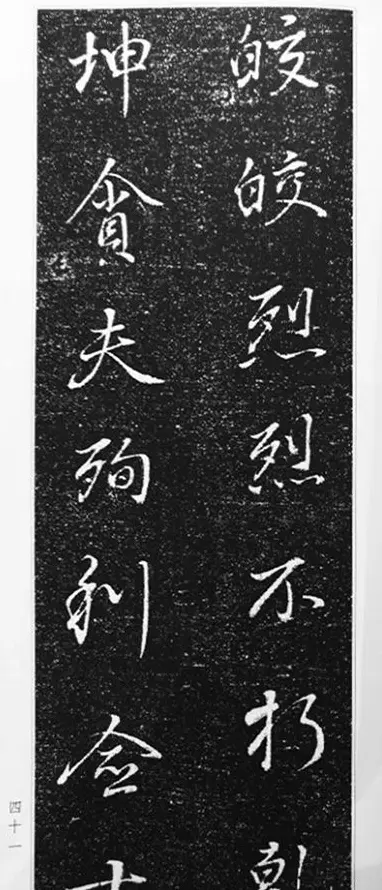 皎皎烈烈不朽乾
坤貪夫殉利
四十一